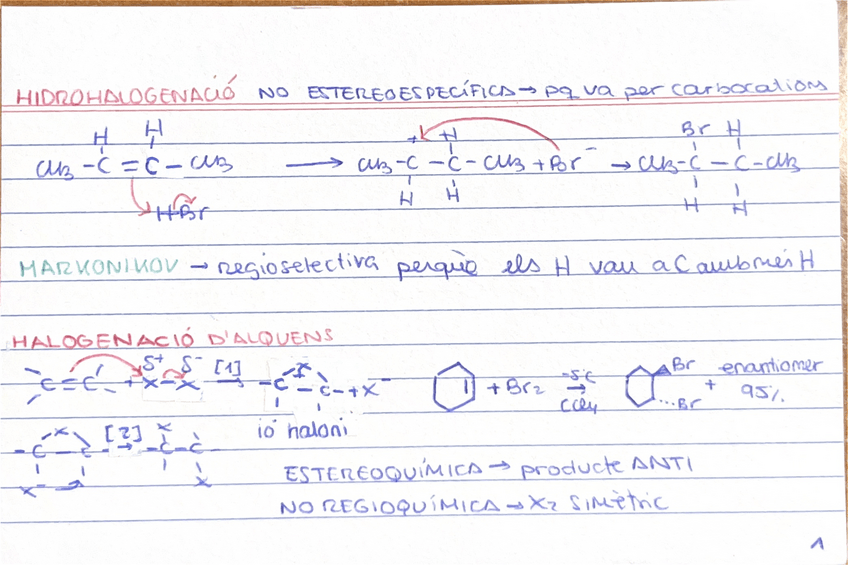 HIDROHALOGENACIÓ NO ESTEREOESPECÍFICA → pq va per carbocations
H H + H Br H
CH3 - C = C - CH3 → CH3 - C - C - CH3 + Br⁻ → CH3 - C - C - CH3
H H H H
H Br
MARKONIKOV → regioselectiva perquè els H van a C amb més H
HALOGENACIÓ D'ALQUENS
C = C + X - X [1] → - C - C - + X⁻
δ+ δ- X
ió haloni
+ Br2 → Br + enantiomer
-5°C CCl4 Br 95%
- C - C - [2] → - C - C -
X X
X⁻ X
ESTEREOQUÍMICA → producte ANTI
NO REGIOQUÍMICA → X2 SIMÈTRIC
1